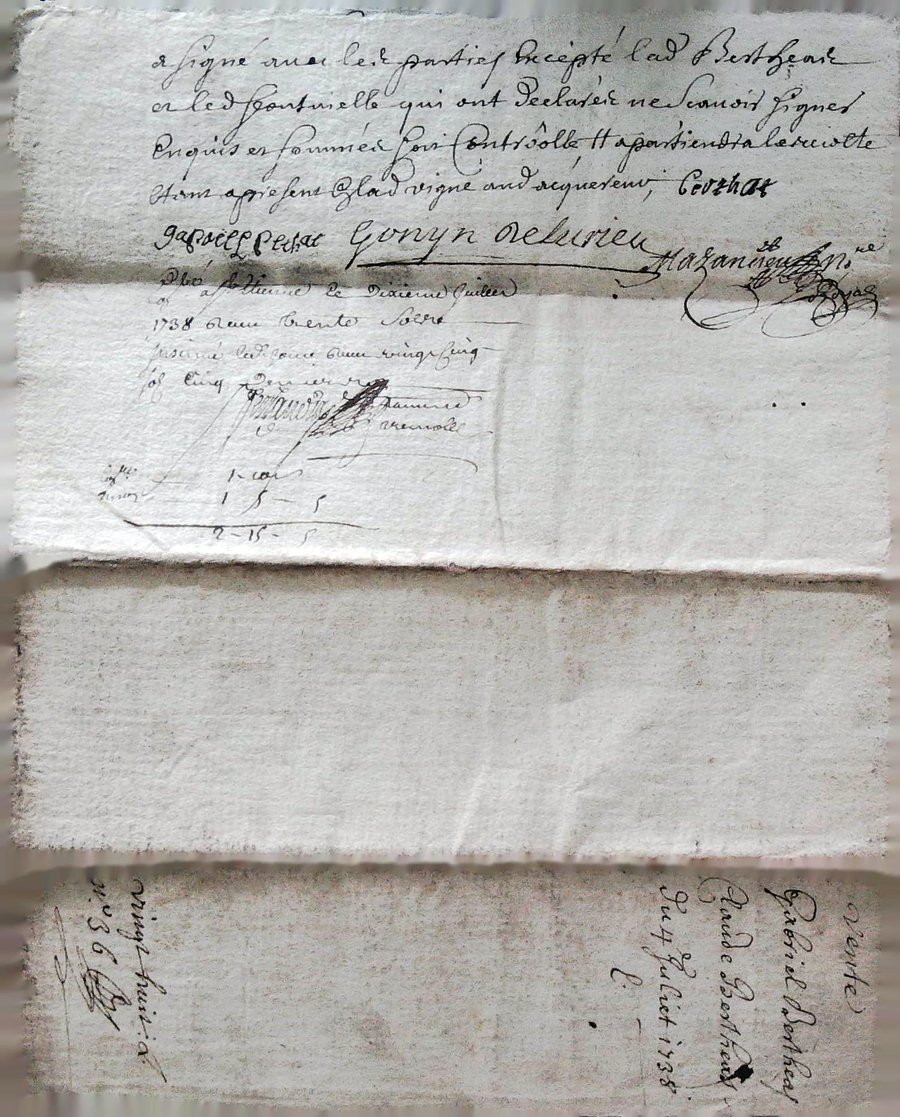 a signé avec les parties Excepté lad Bertheas
et led sentinelle qui ont declarés ne scavoir signer
Enquis et sommés soit Controlle Il apartiendra la recolte
Etant apresent En lad vigne aud acquereur, berthat
gabriel Gonyn Delurieu Mazandieu No.re Royal
a St Etienne le dixieme Juillet
1738 Reçu trente sols
insinué led jour Reçu vingt cinq
sols Cinq deniers
1 5 5
2 - 15 - 5
vente
Gabriel Bertheas
Claude Bertheas
du 4 Juliet 1738
vingt huit
n.o 36